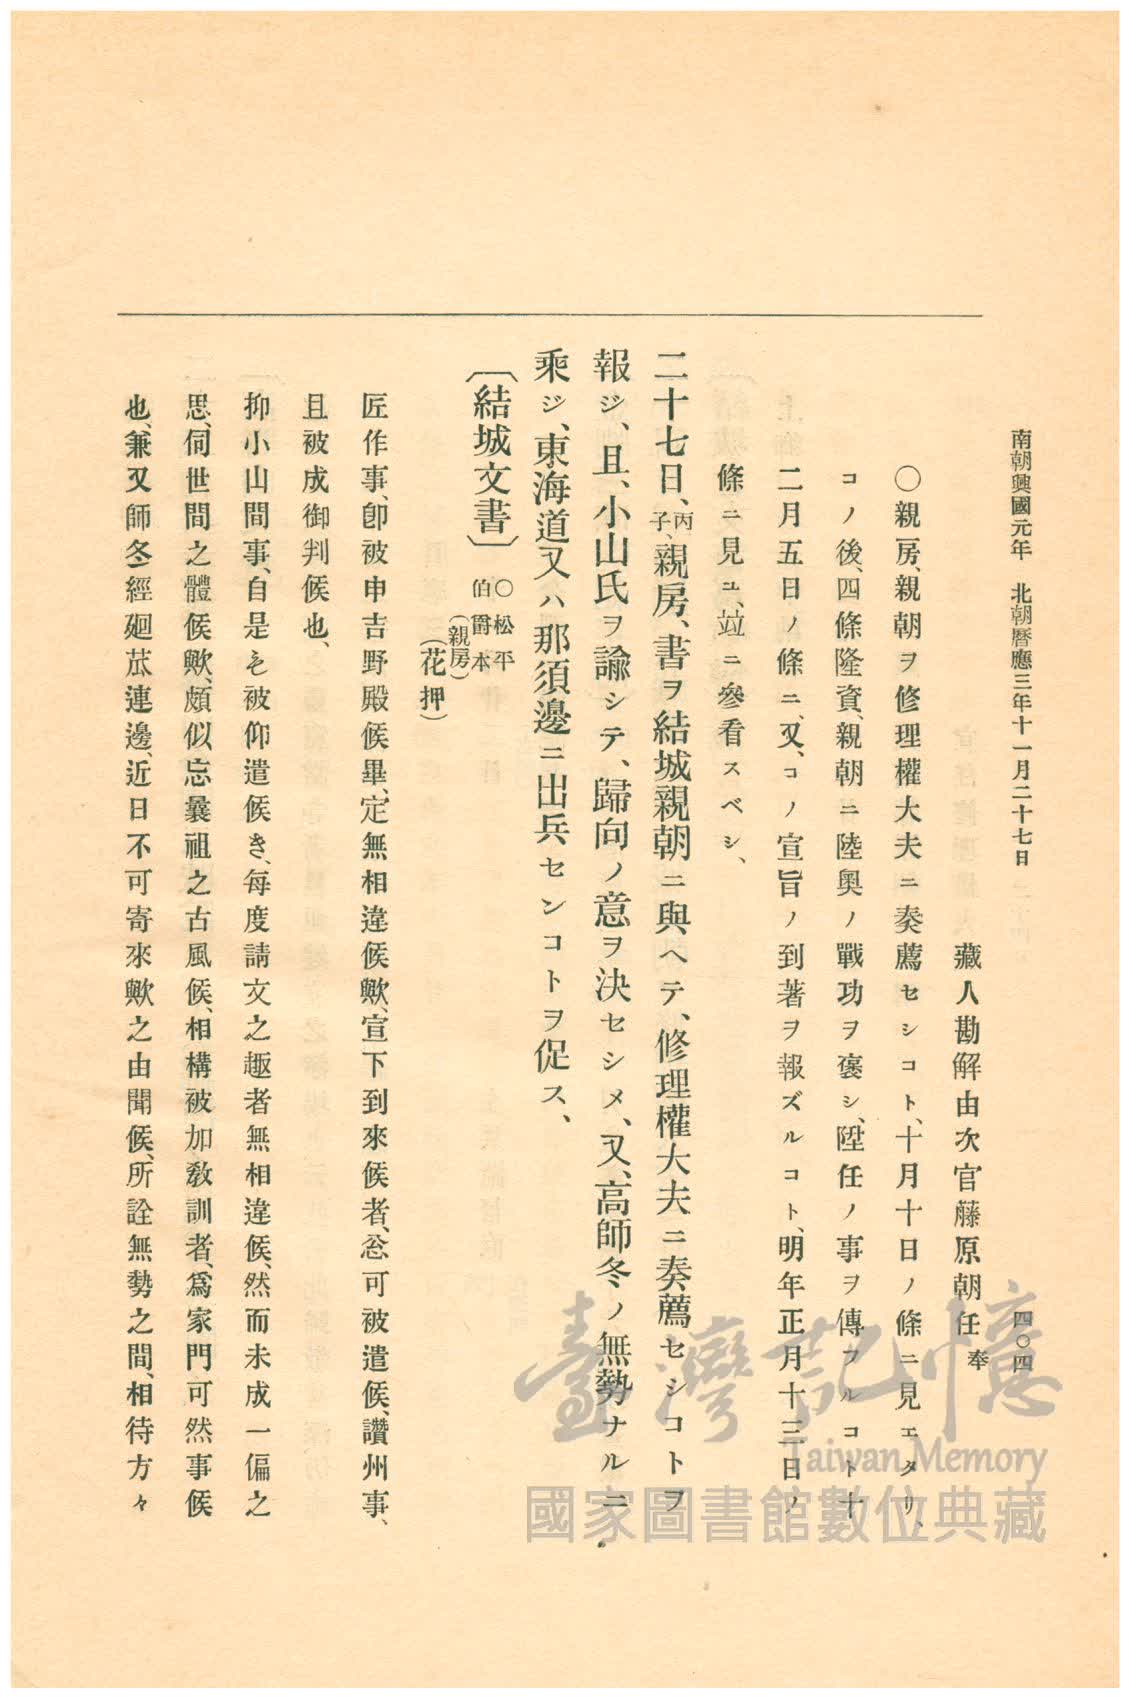 南朝興國元年　北朝曆應三年十一月二十七日　四〇四
藏人勘解由次官藤原朝任奉
〇親房、親朝ヲ修理權大夫ニ奏薦セシコト、十月十日ノ條ニ見エタリ、
コノ後、四條隆資、親朝ニ陸奧ノ戰功ヲ褒シ、陞任ノ事ヲ傳フルコト十
二月五日ノ條ニ、又、コノ宣旨ノ到著ヲ報ズルコト、明年正月十三日ノ
條ニ見ユ、竝ニ參看スベシ、
二十七日、丙子、親房、書ヲ結城親朝ニ與ヘテ、修理權大夫ニ奏薦セシコトヲ
報ジ、且、小山氏ヲ諭シテ、歸向ノ意ヲ決セシメ、又、高師冬ノ無勢ナルニ
乘ジ、東海道又ハ那須邊ニ出兵センコトヲ促ス、
〔結城文書〕〇松平伯爵本
（親房）
（花押）
匠作事、卽被申吉野殿候畢、定無相違候歟、宣下到來候者、忩可被遣候、讚州事、
且被成御判候也、
抑小山間事、自是も被仰遣候き、每度請文之趣者無相違候、然而未成一偏之
思、伺世間之體候歟、頗似忘曩祖之古風候、相構被加敎訓者、爲家門可然事候
也、兼又師冬經廻苽連邊、近日不可寄來歟之由聞候、所詮無勢之間、相待方々
臺灣記憶
Taiwan Memory
國家圖書館數位典藏